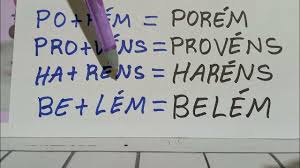 PO+RÉM = PORÉM
PRO+VÉNS = PROVÉNS
HA+RÉNS = HARÉNS
BE+LÉM = BELÉM